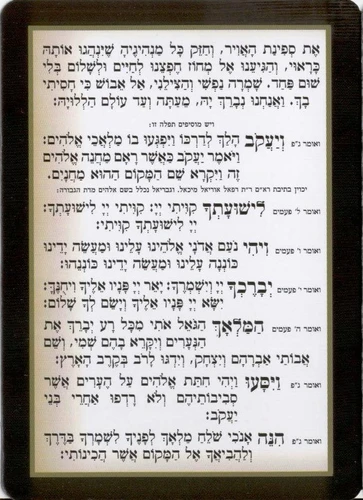 את ספינת האויר, וחזק כל מנהיגיה שינהגו אותה
כראוי, והגיענו אל מחוז חפצנו לחיים ולשלום בלי
שום פחד. שמרה נפשי והצילני, אל אבוש כי חסיתי
בך. ואנחנו נברך יה, מעתה ועד עולם הללויה:
ויש מוסיפים תפלה זו:
ואומר ג״פ ויעקב הלך לדרכו ויפגעו בו מלאכי אלהים:
ויאמר יעקב כאשר ראם מחנה אלהים
זה ויקרא שם המקום ההוא מחנים.
יכוין בתיבת רא״ם ר״ת רפאל אוריאל מיכאל, וגבריאל נכלל בשם אלהים מדת הגבורה:
ואומר ל׳ פעמים לישועתך קויתי יי: קויתי יי לישועתך:
יי לישועתך קויתי:
ואומר ו׳ פעמים ויהי נועם אדני אלהינו עלינו ומעשה ידינו
כוננה עלינו ומעשה ידינו כוננהו:
ואומר י׳ פעמים יברכך יי וישמרך: יאר יי פניו אליך ויחנך:
ישא יי פניו אליך וישם לך שלום:
ואומר ה׳ פעמים המלאך הגאל אתי מכל רע יברך את
הנערים ויקרא בהם שמי, ושם
אבותי אברהם ויצחק, וידגו לרב בקרב הארץ:
ואומר ג״פ ויסעו ויהי חתת אלהים על הערים אשר
סביבותיהם ולא רדפו אחרי בני
יעקב:
ואומר ג״פ הנה אנכי שלח מלאך לפניך לשמרך בדרך
ולהביאך אל המקום אשר הכינותי: